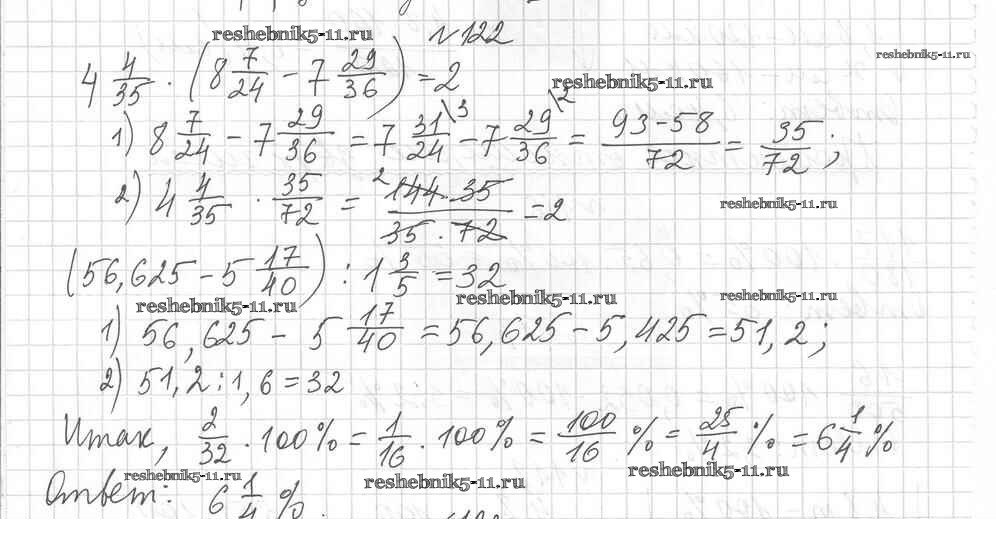 reshebnik5-11.ru №122
4 4/35 · (8 7/24 − 7 29/36) = 2
reshebnik5-11.ru
reshebnik5-11.ru
1) 8 7/24 − 7 29/36 = 7 31/24\3 − 7 29/36\2 = 93−58/72 = 35/72;
2) 4 4/35 · 35/72 = 2 144·35/35·72 = 2
reshebnik5-11.ru
(56,625 − 5 17/40) : 1 3/5 = 32
reshebnik5-11.ru reshebnik5-11.ru reshebnik5-11.ru
1) 56,625 − 5 17/40 = 56,625 − 5,425 = 51,2;
2) 51,2 : 1,6 = 32
Итак, 2/32 · 100% = 1/16 · 100% = 100/16 % = 25/4 % = 6 1/4 %
reshebnik5-11.ru reshebnik5-11.ru reshebnik5-11.ru
Ответ: 6 1/4 %.